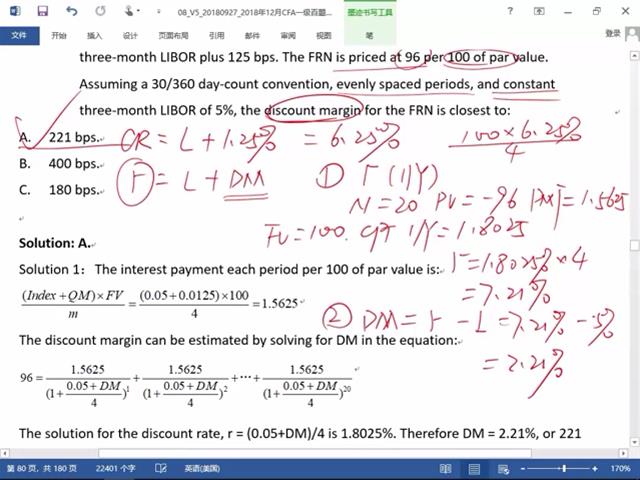 08_V5_20180927_2018年12月CFA一级百题
墨迹书写工具
文件
笔
登录
three-month LIBOR plus 125 bps. The FRN is priced at 96 per 100 of par value.
Assuming a 30/360 day-count convention, evenly spaced periods, and constant
three-month LIBOR of 5%, the discount margin for the FRN is closest to:
A. 221 bps. CR = L + 1.25% = 6.25% 100 × 6.25% / 4
B. 400 bps. r = L + DM ① r (I/Y)
C. 180 bps. N = 20 PV = -96 PMT = 1.5625
FV = 100. CPT I/Y = 1.8025
Solution: A.
Solution 1: The interest payment each period per 100 of par value is: r = 1.8025% × 4
(Index + QM) × FV / m = (0.05 + 0.0125) × 100 / 4 = 1.5625 = 7.21%
② DM = r - L = 7.21% - 5%
The discount margin can be estimated by solving for DM in the equation:
= 2.21%
96 = 1.5625 / (1 + (0.05 + DM) / 4)^1 + 1.5625 / (1 + (0.05 + DM) / 4)^2 + ··· + 1.5625 / (1 + (0.05 + DM) / 4)^20
The solution for the discount rate, r = (0.05+DM)/4 is 1.8025%. Therefore DM = 2.21%, or 221
第 80 页，共 180 页 22401 个字 英语(美国) 170%